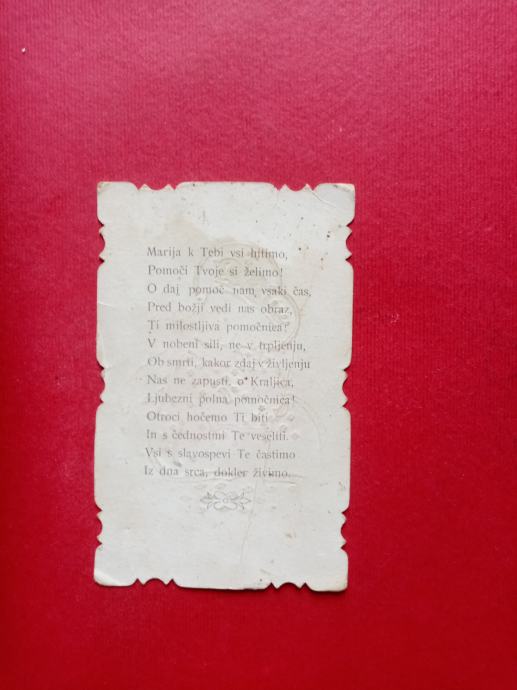 Marija k Tebi vsi hitimo,
Pomoči Tvoje si želimo!
O daj pomoč nam vsaki čas,
Pred božji vedi nas obraz,
Ti milostljiva pomočnica!
V nobeni sili, ne v trpljenju,
Ob smrti, kakor zdaj v življenju
Nas ne zapusti, o Kraljica,
Ljubezni polna pomočnica!
Otroci hočemo Ti biti
In s čednostmi Te veseliti.
Vsi s slavospevi Te častimo
Iz dna srca, dokler živimo.